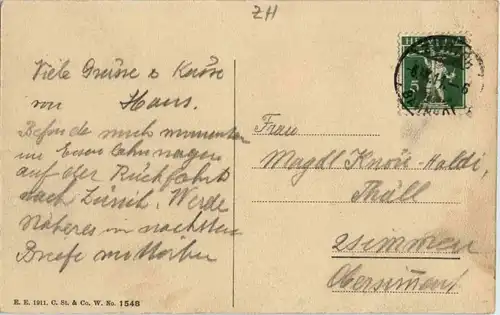 ZH
Viele Grüsse & Küsse
von Hans.
Befinde mich momentan
im Eisenbahnwagen
auf der Rückfahrt
nach Zürich. Werde
Näheres im nächsten
Briefe mitteilen
HELVETIA
5
Frau
Magdl Knöri-Haldi,
Thäll
Zsimmen
Obersimment
E. E. 1911. C. St. & Co. W. No. 1548